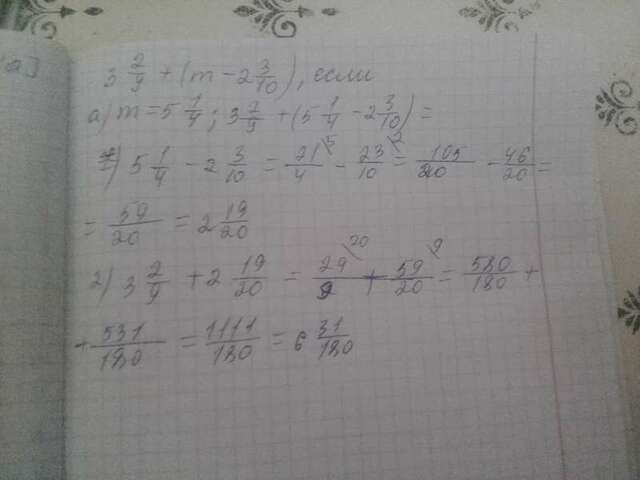 а)
3 2/9 + (m - 2 3/10), если
а) m = 5 1/4; 3 2/9 + (5 1/4 - 2 3/10) =
1) 5 1/4 - 2 3/10 = 21/4 \5 - 23/10 \2 = 105/20 - 46/20 =
= 59/20 = 2 19/20
2) 3 2/9 + 2 19/20 = 29/9 \20 + 59/20 \9 = 580/180 +
+ 531/180 = 1111/180 = 6 31/180